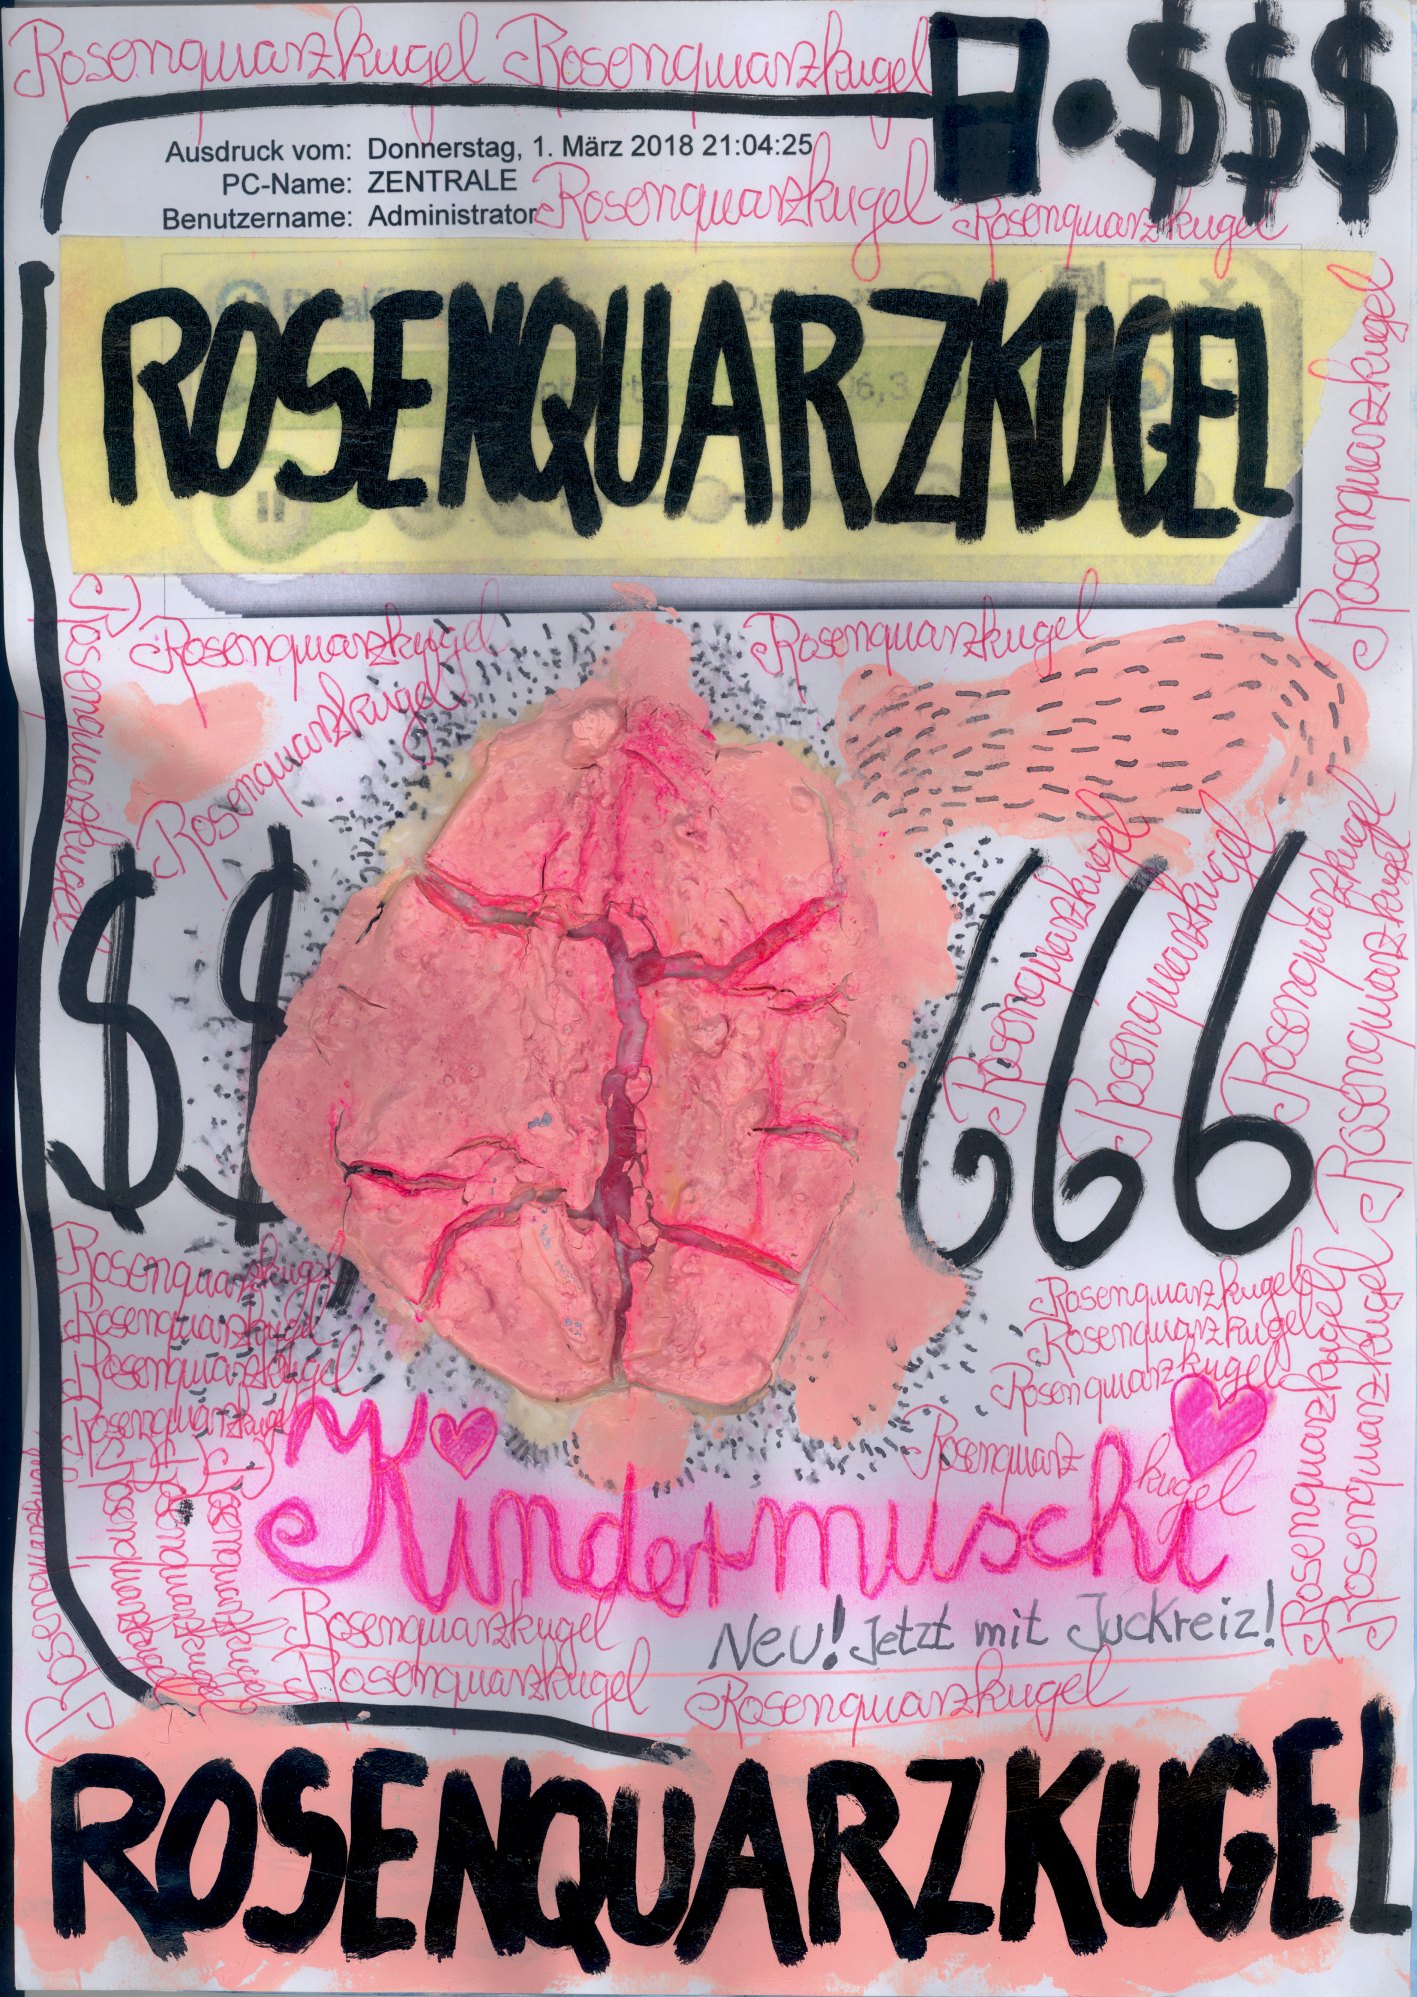 Rosenquarzkugel Rosenquarzkugel
$$$
Ausdruck vom: Donnerstag, 1. März 2018 21:04:25
PC-Name: ZENTRALE
Benutzername: Administrator
Rosenquarzkugel
Rosenquarzkugel
ROSENQUARZKUGEL
Rosenquarzkugel
Rosenquarzkugel
Rosenquarzkugel
Rosenquarzkugel
Rosenquarzkugel
$$
666
Rosenquarzkugel
Rosenquarzkugel
Rosenquarzkugel
Rosenquarzkugel
Rosenquarzkugel
Rosenquarzkugel
Rosenquarzkugel
Rosenquarzkugel
Rosenquarzkugel
Rosenquarzkugel
Rosenquarzkugel
Rosenquarz kugel
Rosenquarzkugel
Rosenquarzkugel
Kindermuschi
Rosenquarzkugel
Rosenquarzkugel
Rosenquarzkugel
Rosenquarzkugel
Neu! Jetzt mit Juckreiz!
Rosenquarzkugel
Rosenquarzkugel
Rosenquarzkugel
ROSENQUARZKUGEL